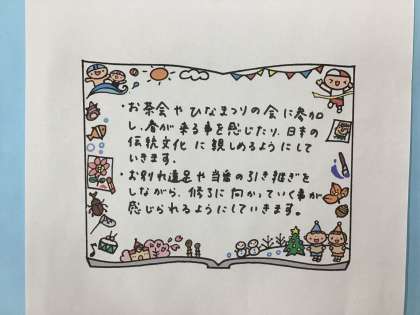 ・お茶会やひなまつりの会に参加
し、春が来る事を感じたり、日本の
伝統文化に親しめるようにして
いきます。
・お別れ遠足や当番の引き継ぎを
しながら、修了に向かっていく事が
感じられるようにしていきます。